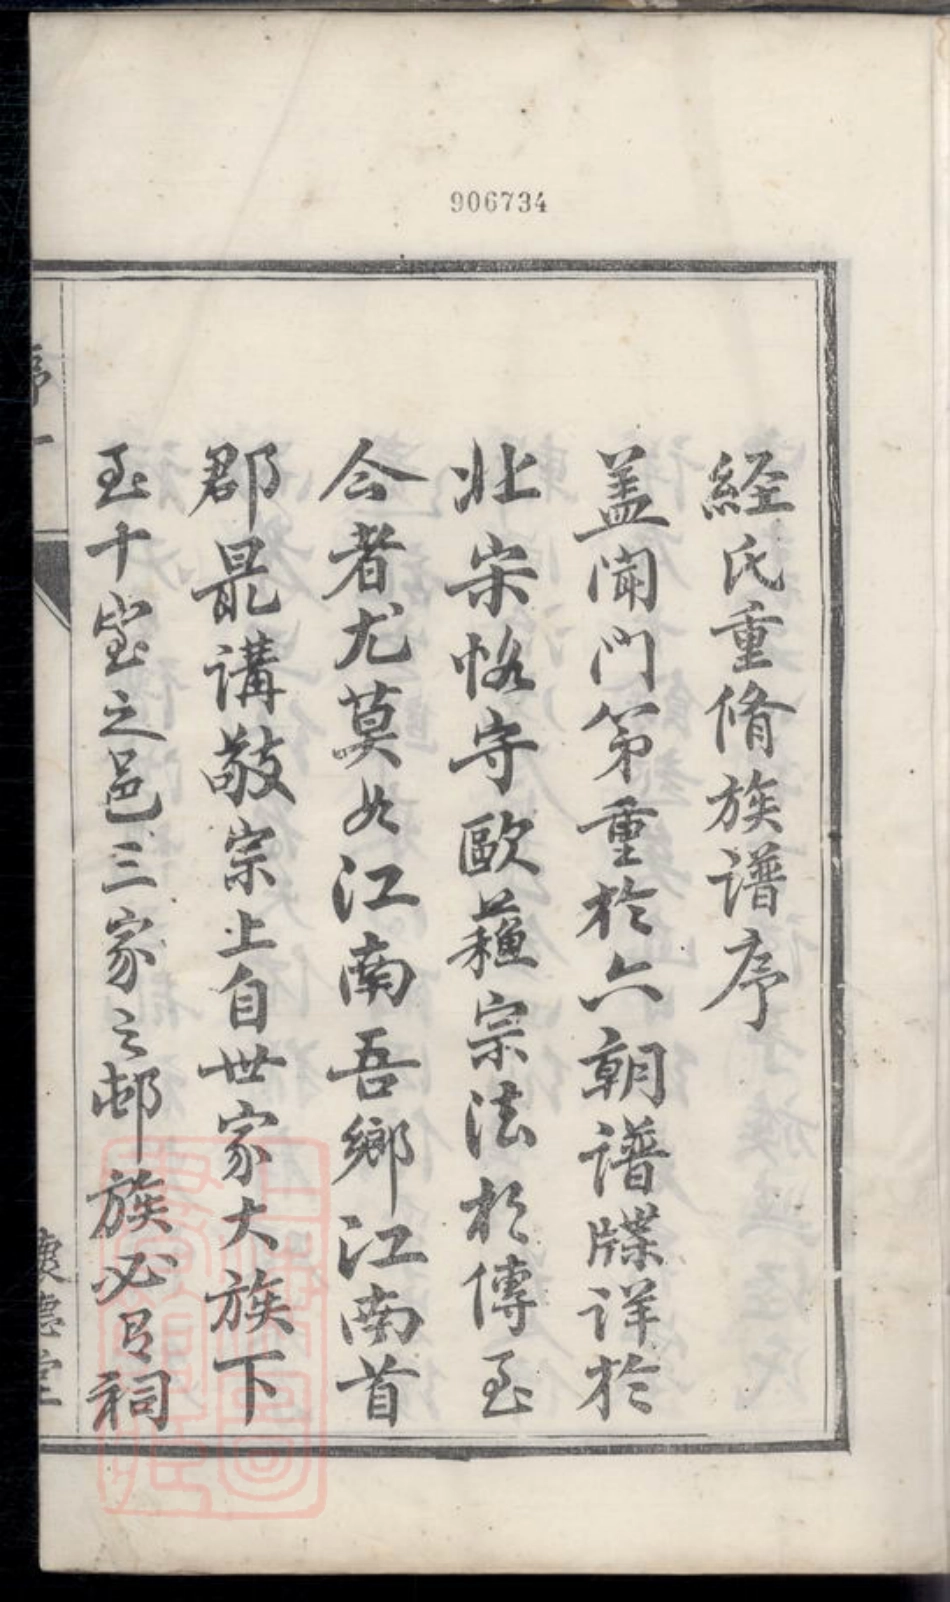 906734
經氏重脩族譜序
盖聞門第重於六朝譜牒詳於
北宋恪守歐蘓宗法於傳至
今者尤莫如江南吾鄉江南首
郡最講敬宗上自世家大族下
至十室之邑三家之邨族必有祠
序一
德堂